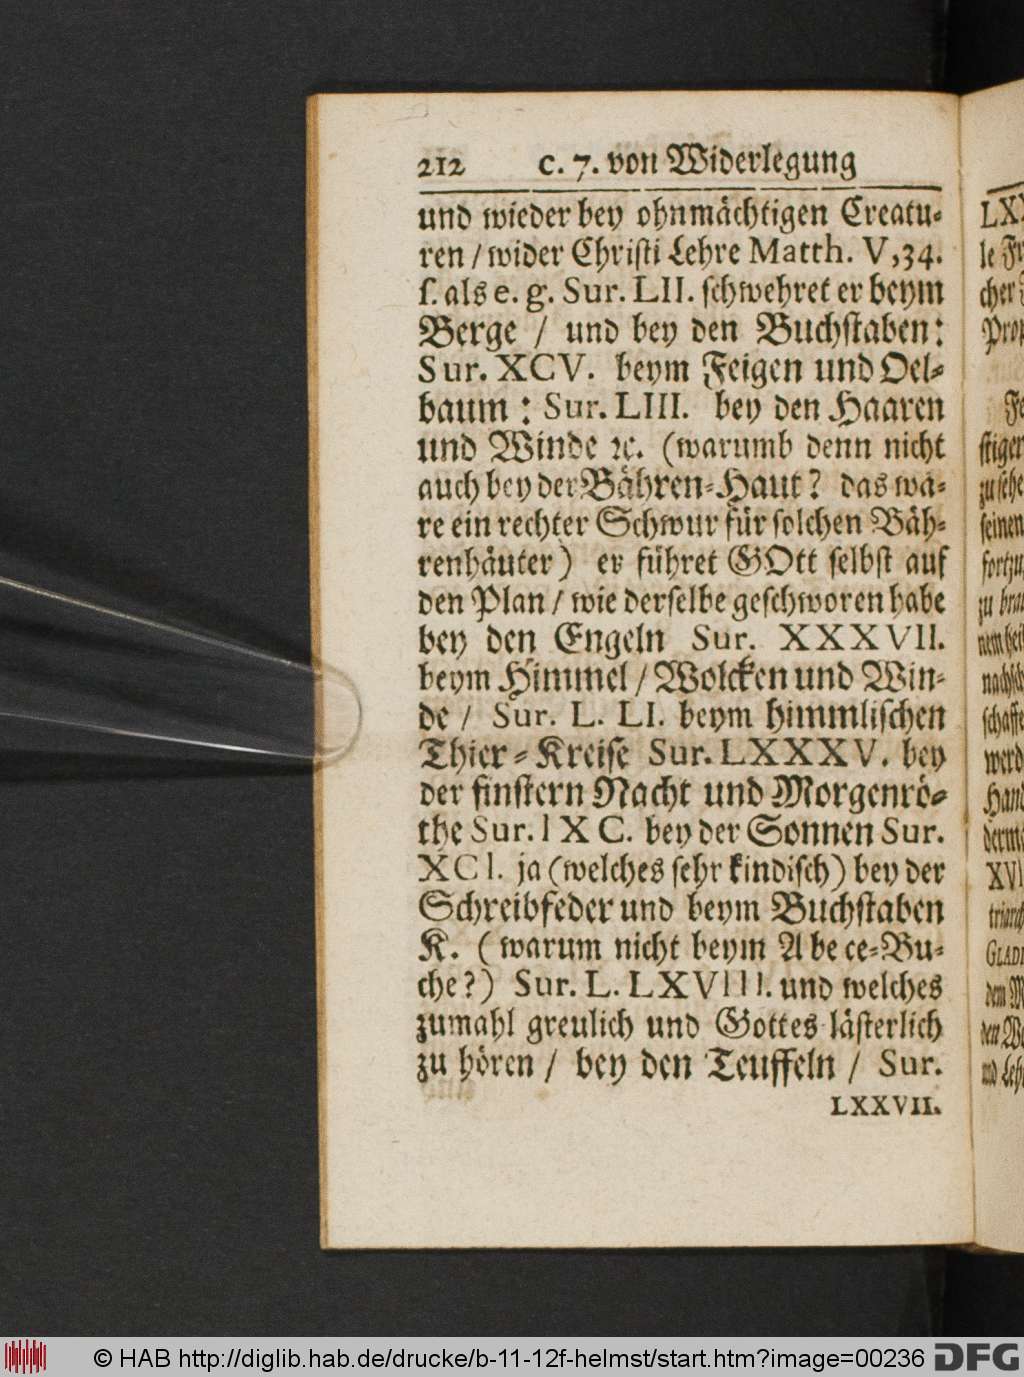 212 c. 7. von Widerlegung
und wieder bey ohnmächtigen Creatu-
ren / wider Christi Lehre Matth. V, 34.
s. als e. g. Sur. LII. schwehret er beym
Berge / und bey den Buchstaben:
Sur. XCV. beym Feigen und Oel-
baum: Sur. LIII. bey den Haaren
und Winde ꝛc. (warumb denn nicht
auch bey der Bähren-Haut? das wä-
re ein rechter Schwur für solchen Bäh-
renhäuter) er führet GOtt selbst auf
den Plan / wie derselbe geschworen habe
bey den Engeln Sur. XXXVII.
beym Himmel / Wolcken und Win-
de / Sur. L. LI. beym himmlischen
Thier-Kreise Sur. LXXXV. bey
der finstern Nacht und Morgenrö-
the Sur. lXC. bey der Sonnen Sur.
XCI. ja (welches sehr kindisch) bey der
Schreibfeder und beym Buchstaben
K. (warum nicht beym A be ce-Bu-
che?) Sur. L. LXVIII. und welches
zumahl greulich und Gottes lästerlich
zu hören / bey den Teuffeln / Sur.
LXXVII.
© HAB http://diglib.hab.de/drucke/b-11-12f-helmst/start.htm?image=00236 DFG